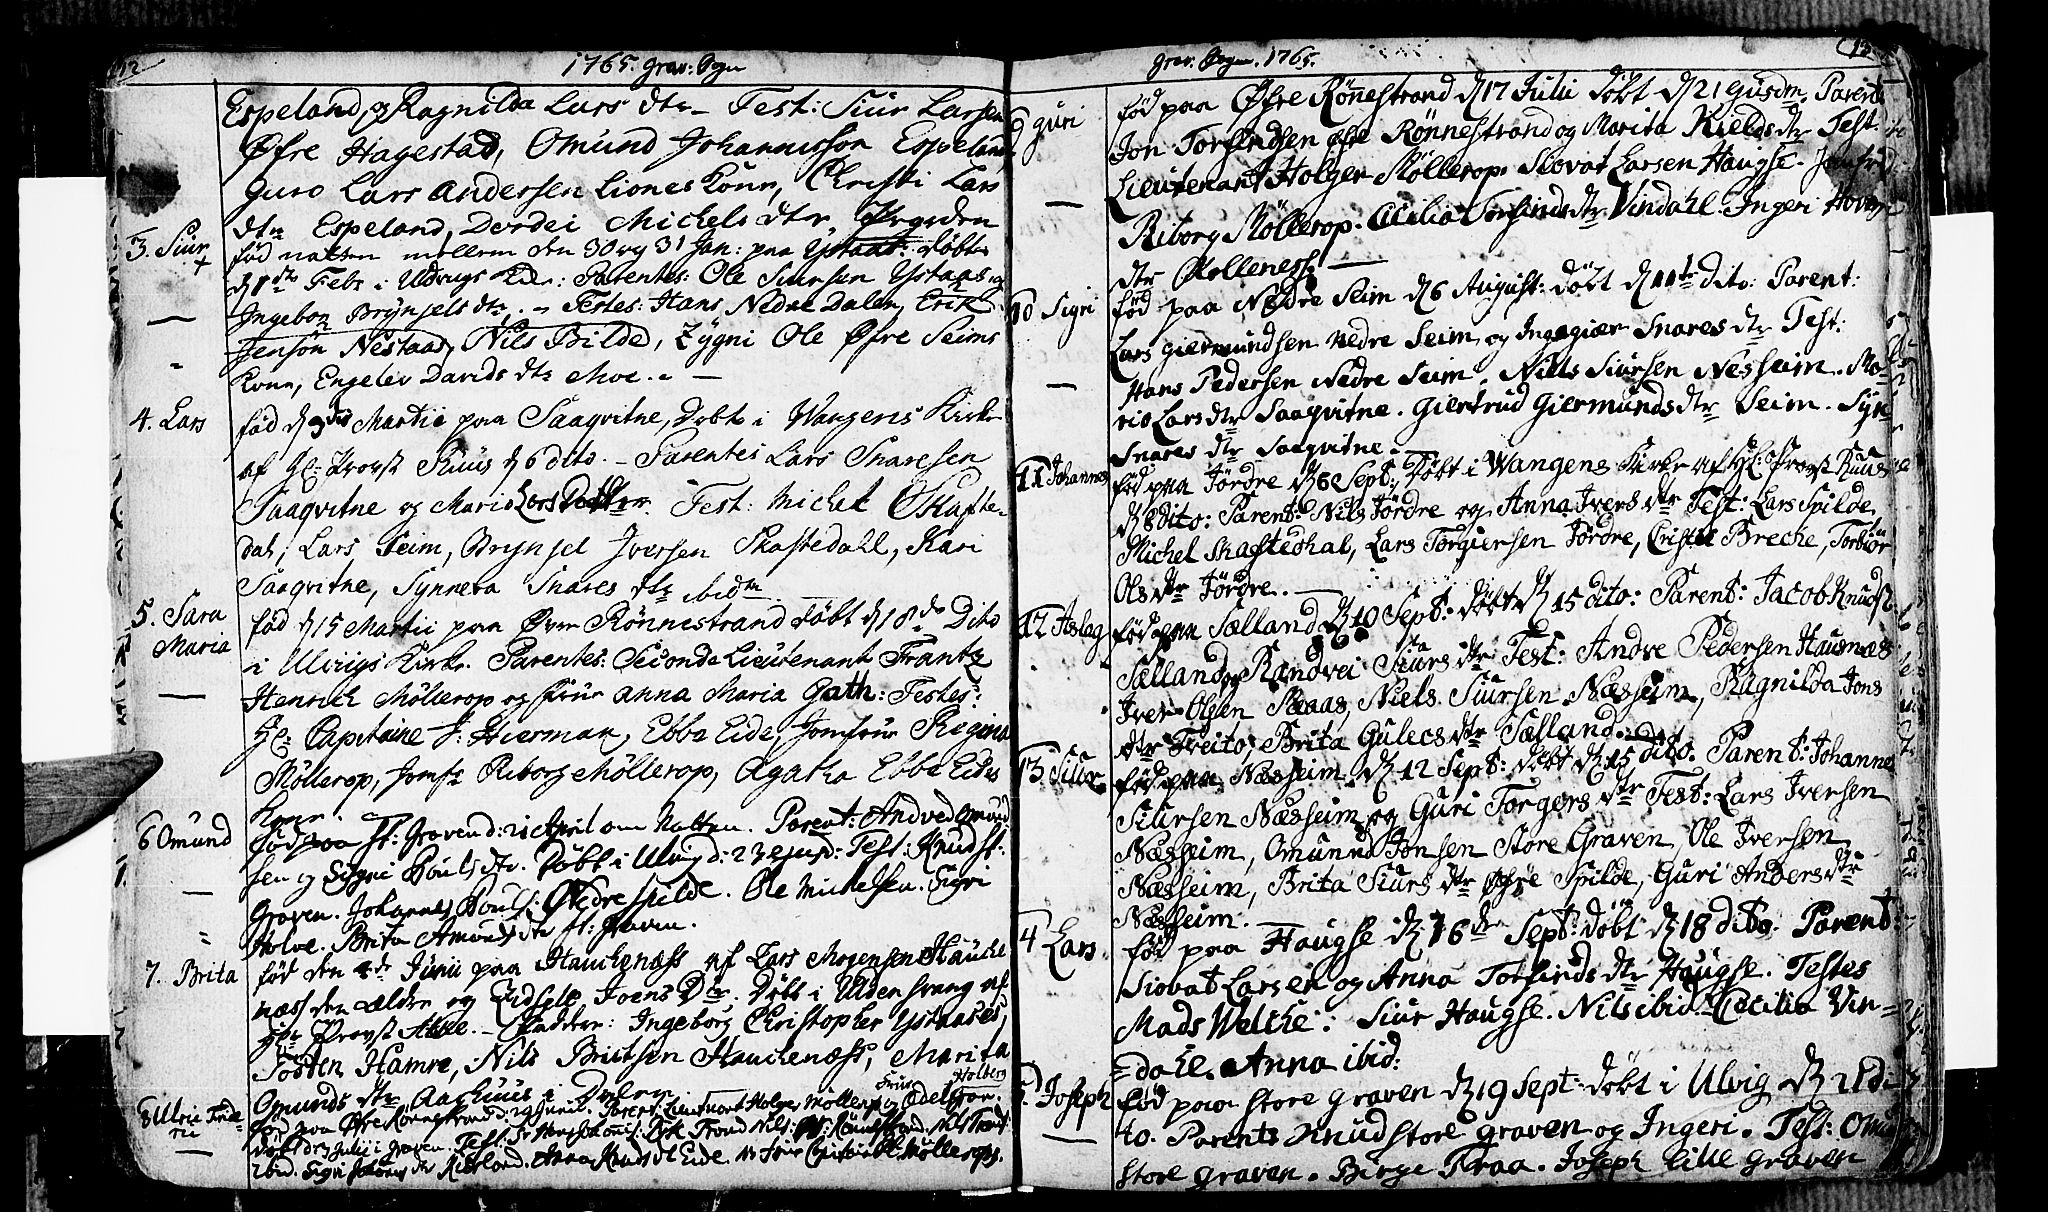 1765. Grav: Sogn
Espeland, og Ragnilda Lars dtr – Test: Siur Larsen
Øfre Hagestad, Omund Johannisson Espeland,
Guro Lars Andersen Liones Konn, Christi Lars
dtr Espeland, Dordei Michels dtr
3. Siur
fød natten mellem den 30 og 31 Jan: paa Ystaas: døbt
d 1ste Febr i Ulvigs Parentes: Ole Siursen Ystaas og
Ingebor Brynjels dtr. – Testes: Hans Nedre Dalen, Erik
Jenson Nestaas, Nils Bilde, Zygni Ole Øfre Seims
Konn, Engelev Davids dtr Moe. –
4. Lars
fød d 3die Martii paa Saaqvitne, Døbt i Wangens Kirke
af Hr: Provst Ruus d 6 dito. – Parentes Lars Snaresen
Saaqvitne og Mario Lars Datter. Test: Michel Skafte-
dal, Lars Seim, Brynjel Iversen Skaftedahl, Kari
Saaqvitne, Synneva Snares dtr ibidm
5. Sara
Maria
fød d 15 Martii paa Øvre Rønnestrand døbt d 18de Dito
i Ulvigs Kirke. Parentes: Seconde Lieutenant Frantz
Henrich Möllerop og Frue Anna Maria Gath: Testes:
Hr: Capitaine J: Hierman, Ebbe Eide, Jomfrue Regina
Möllerop, Jomfr Riborg Möllerop, Agatha Ebbe Eides
Konn.
6 Omund
fød paa St: Graven d: 21 April om Natten. Parent: Andved Omund
sen og Sigri Pouls dtr. Døbt i Ulvig d: 23 ejusd: Test: Knud St:
Graven. Johannes Pouls: Nedre Spilde. Ole Michelsen. Sigri
Holve. Brita Amunds dtr St: Graven.
7. Brita
fød den 4de Junii paa Hauckenæss af Lars Mogensen Hauche
næs den ælder og Eidsele Joens Dtr. Døbt i Ullensvang af
Hr Provst – Faddere: Ingeborg Christopher Ystaases,
Tosten Hamre, Nils Britsen Hauchenæss, Marita
Omunds dtr Aarhuus i
8 Ulric Fride
ric
Frue Holberg
fød paa Øfre Rønnestrand d: 29 Junii. Parent: Lieutenant Holger Möllerop og Edel
Døbt d 7 Julii i Graven. Test: Trond Nils:
ibid. Sigri dtr Kierland. Anna Knuds dtr Eide. Möllerops.
Grav: Sogn. 1765.
9 guri
fød paa Øfre Rønestrand d 17 Julii døbt d 21 ejusdm, Parente
Jon Torfindsen øfre Rønnestrand og Marita Kields dtr Test
Lieutenant Holger Möllerop. Siovat Larsen Haugse. Jomfrue
Riborg Möllerop. Cicilia Torfinds dtr Vindahl. Ingeri Hover
dtr Kolleness. —
10 Sigri
fød paa Nedre Seim d 6 August: døbt d 11te dito: Parent:
Lars Giermundsen Nedre Seim og Ingegier Snares dtr Test:
Hans Pedersen Nedre Seim. Nills Siursen Nesseim. Ma-
rio Lars dtr Saaqvitne. Giertrud Giermunds dtr Seim. Syn
Snares dtr Saaqvitne.
11 Johannes
fød paa Jørdre d 6 Sept: Døbt i Wangens Kirke af Hr: Provst Ruus
d 8 dito: Parent: Nils Jördre og Anna Ivers dtr Test: Lars Spilde,
Michel Skaftedhal, Lars Torgiersen Jördre, Cristie Breche, Torbiör
Ols dtr Jördre. —
12 Aslag
fød paa Sælland d 10 Sept: døbt d 15 dito: Parent: Jacob Knuds:
Sælland og Randvei Siurs dtr Test: Andve Pedersen Hausnæs
Iver Olsen Skaas, Niels Siursen Næsheim, Ragnilda Jons
dtr Treito, Brita Gulecs dtr Sælland.
13. Siiur
fød paa Næsheim d 12 Sept: døbt d 15 dito. Parent: Johannes
Siursen Næsheim og Guri Torgers dtr Test: Lars Iversen
Næsheim, Omund Jonsen Store Graven, Ole Iversen
Næsheim, Brita Siurs dtr Øfre Spilde, Guri Anders dtr
Næsheim.
14 Lars
fød paa Haugse d 16de Sept: døbt d 18 dito. Parent:
Siovat Larsen og Anna Torfinds dtr Haugse. Testes
Mads Welche: Siur Haugse. Nils ibid. Cecilia Vin-
=dahl. Anna ibid:
15. Joseph
fød paa store Graven d 19 Sept: døbt i Ulvig d 21 di
to. Parents Knud store graven og Ingeri. Test: Omun
store graven. Birge Traa. Joseph Lille graven